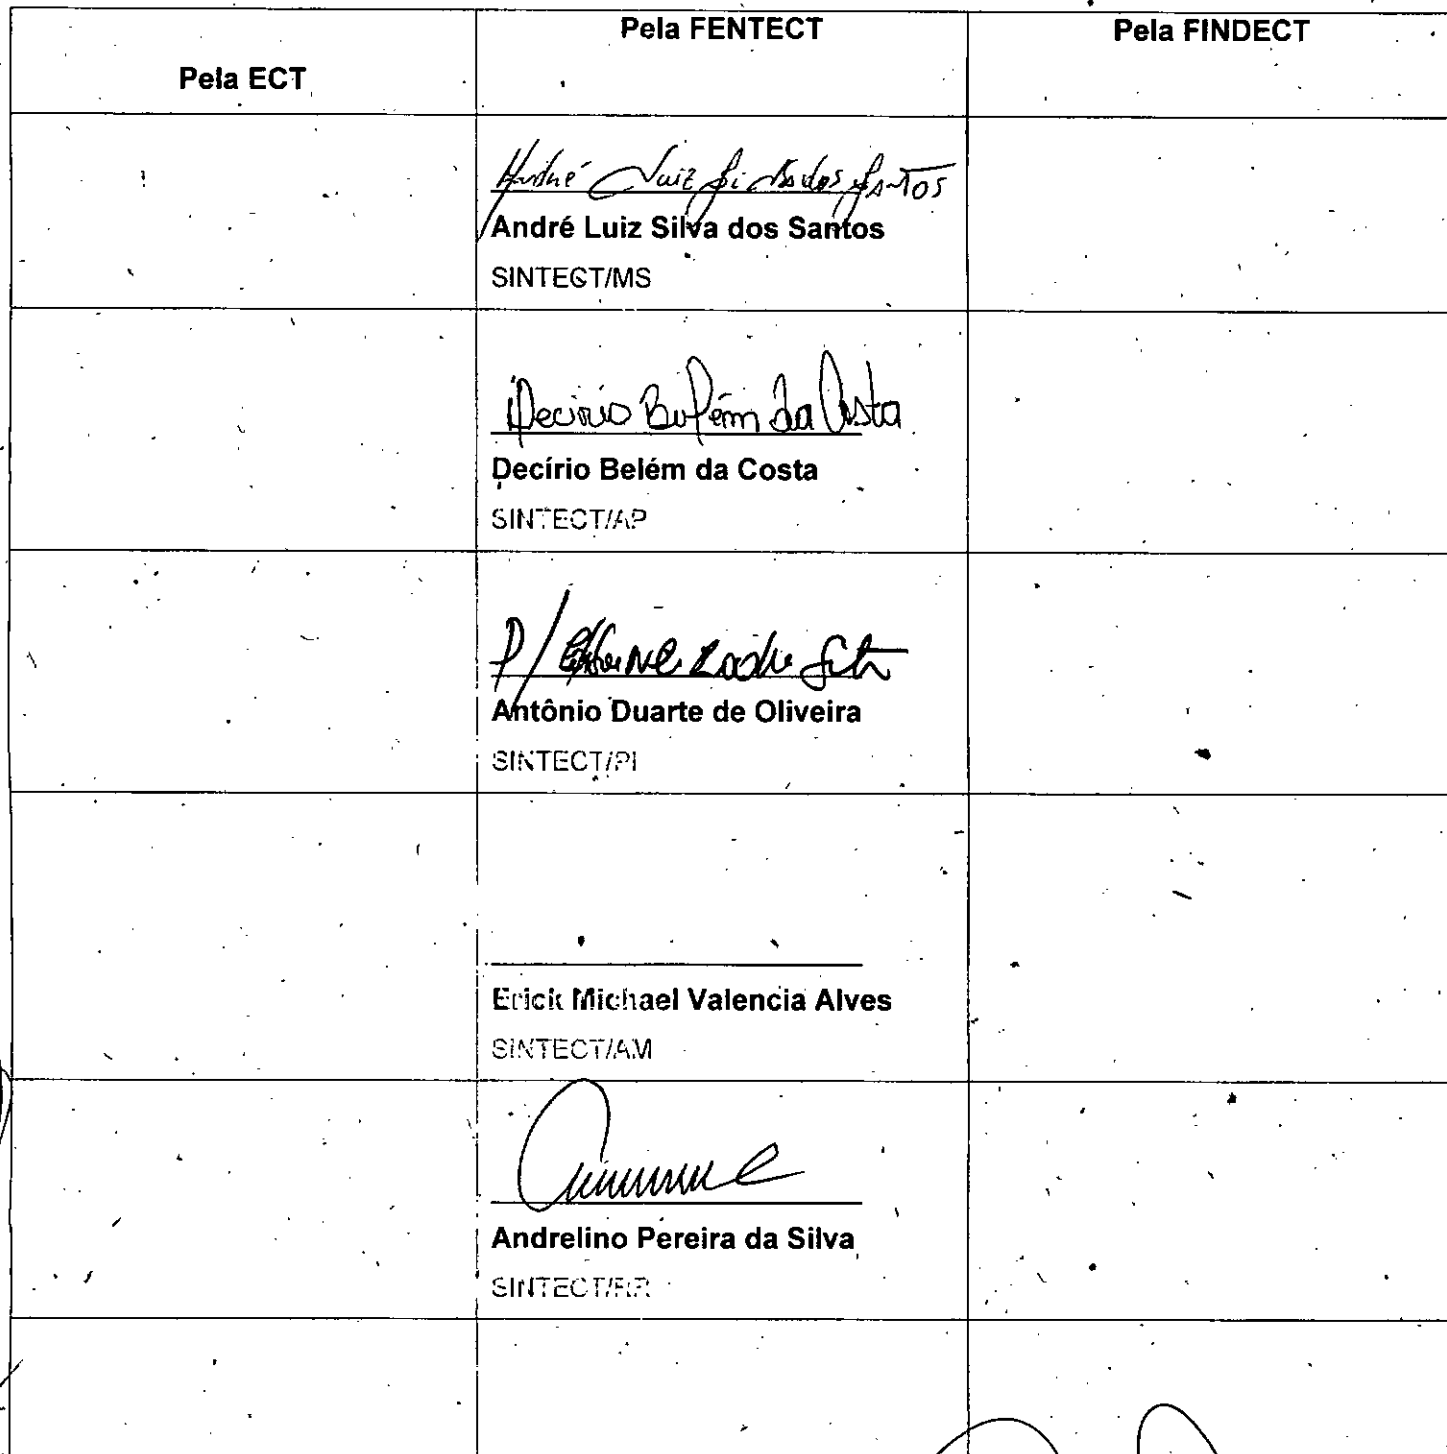 Pela ECT
Pela FENTECT
Pela FINDECT
André Luiz Silva dos Santos
André Luiz Silva dos Santos
SINTECT/MS
Decirio Belém da Costa
Decírio Belém da Costa
SINTECT/AP
P/
Antônio Duarte de Oliveira
SINTECT/PI
Erick Michael Valencia Alves
SINTECT/AM
Andrelino Pereira da Silva
SINTECT/RR